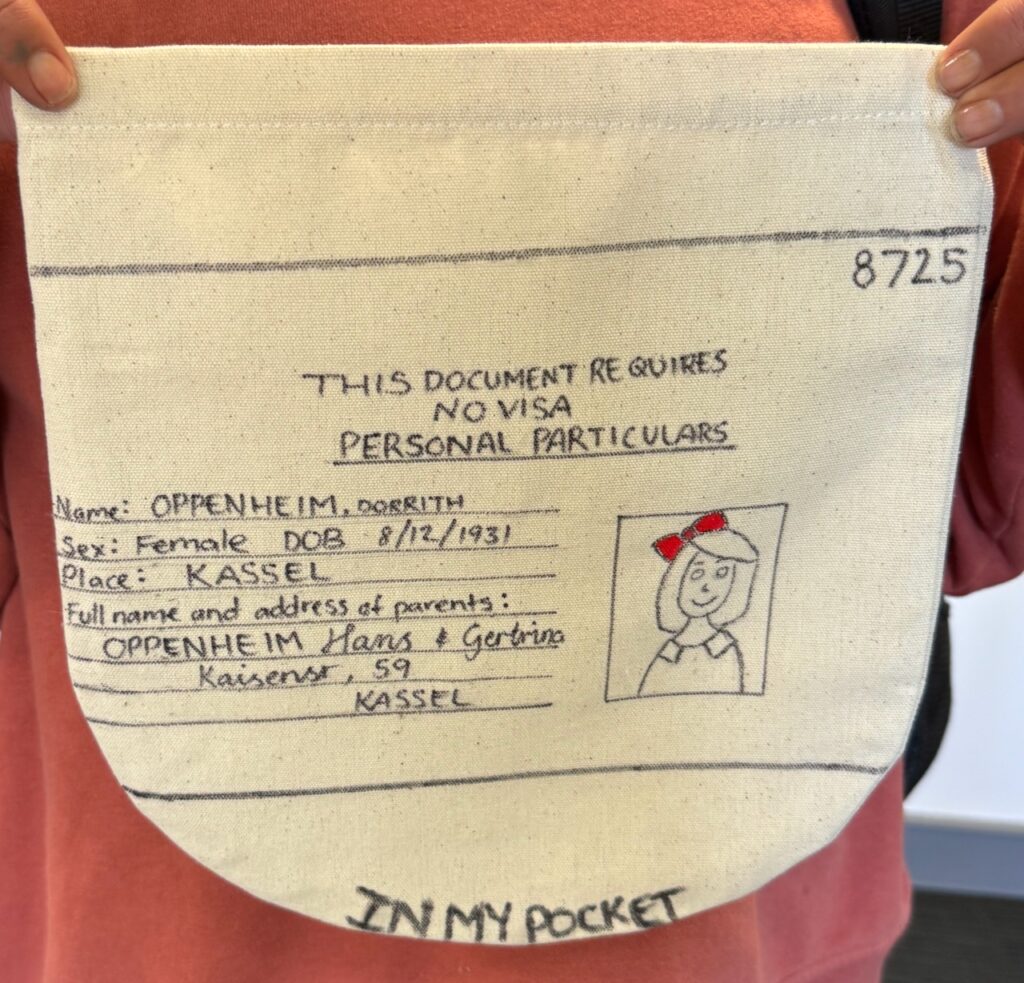 8725
THIS DOCUMENT REQUIRES
NO VISA
PERSONAL PARTICULARS
Name: OPPENHEIM, DORRITH
Sex: Female DOB 8/12/1931
Place: KASSEL
Full name and address of parents:
OPPENHEIM Hans & Gertrina
Kaisenstr, 59
KASSEL
IN MY POCKET